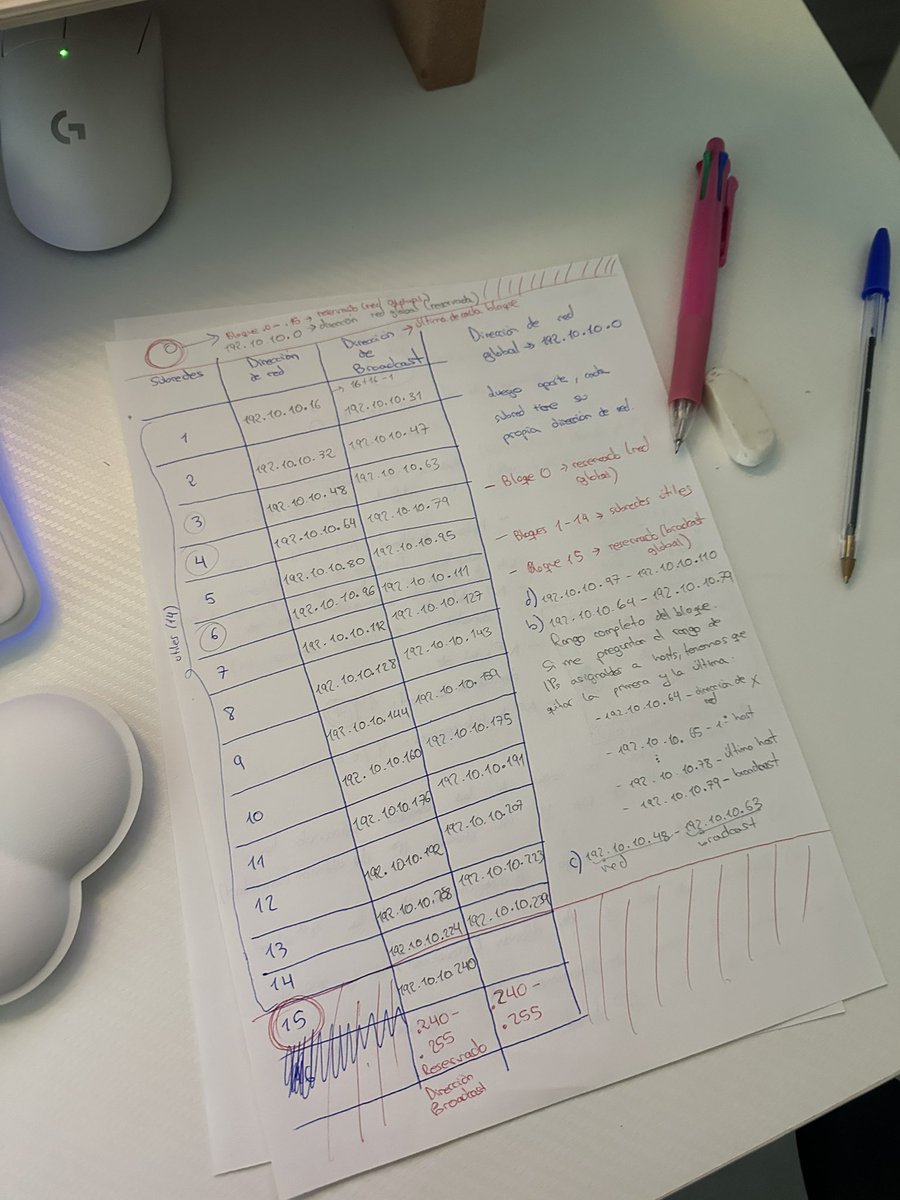 G
0 → Bloque 0 - .15 → reservado (red
192.10.10.0 → dirección red global (reservada)
Subredes
Dirección de red
Dirección de Broadcast → último de cada bloque
→ 16+16-1
1 192.10.10.16 192.10.10.31
2 192.10.10.32 192.10.10.47
3 192.10.10.48 192.10.10.63
4 192.10.10.64 192.10.10.79
5 192.10.10.80 192.10.10.95
6 192.10.10.96 192.10.10.111
7 192.10.10.112 192.10.10.127
8 192.10.10.128 192.10.10.143
9 192.10.10.144 192.10.10.159
10 192.10.10.160 192.10.10.175
11 192.10.10.176 192.10.10.191
12 192.10.10.192 192.10.10.207
13 192.10.10.208 192.10.10.223
14 192.10.10.224 192.10.10.239
15 192.10.10.240
útiles (14)
.240-
.255
Reservado
Dirección
Broadcast
.240-
.255
Dirección de red
global → 192.10.10.0
Luego aparte, cada
subred tiene su
propia dirección de red.
- Bloque 0 → reservado (red
global)
- Bloques 1-14 → subredes útiles
- Bloque 15 → reservado (broadcast
global)
d) 192.10.10.97 - 192.10.10.110
b) 192.10.10.64 - 192.10.10.79
Rango completo del bloque.
Si me preguntan el rango de
IPs asignables a hosts, tenemos que
quitar la primera y la última.
- 192.10.10.64 - dirección de X
red
- 192.10.10.65 - 1º host
⋮
- 192.10.10.78 - último host
- 192.10.10.79 - broadcast
c) 192.10.10.48 - 192.10.10.63
red broadcast